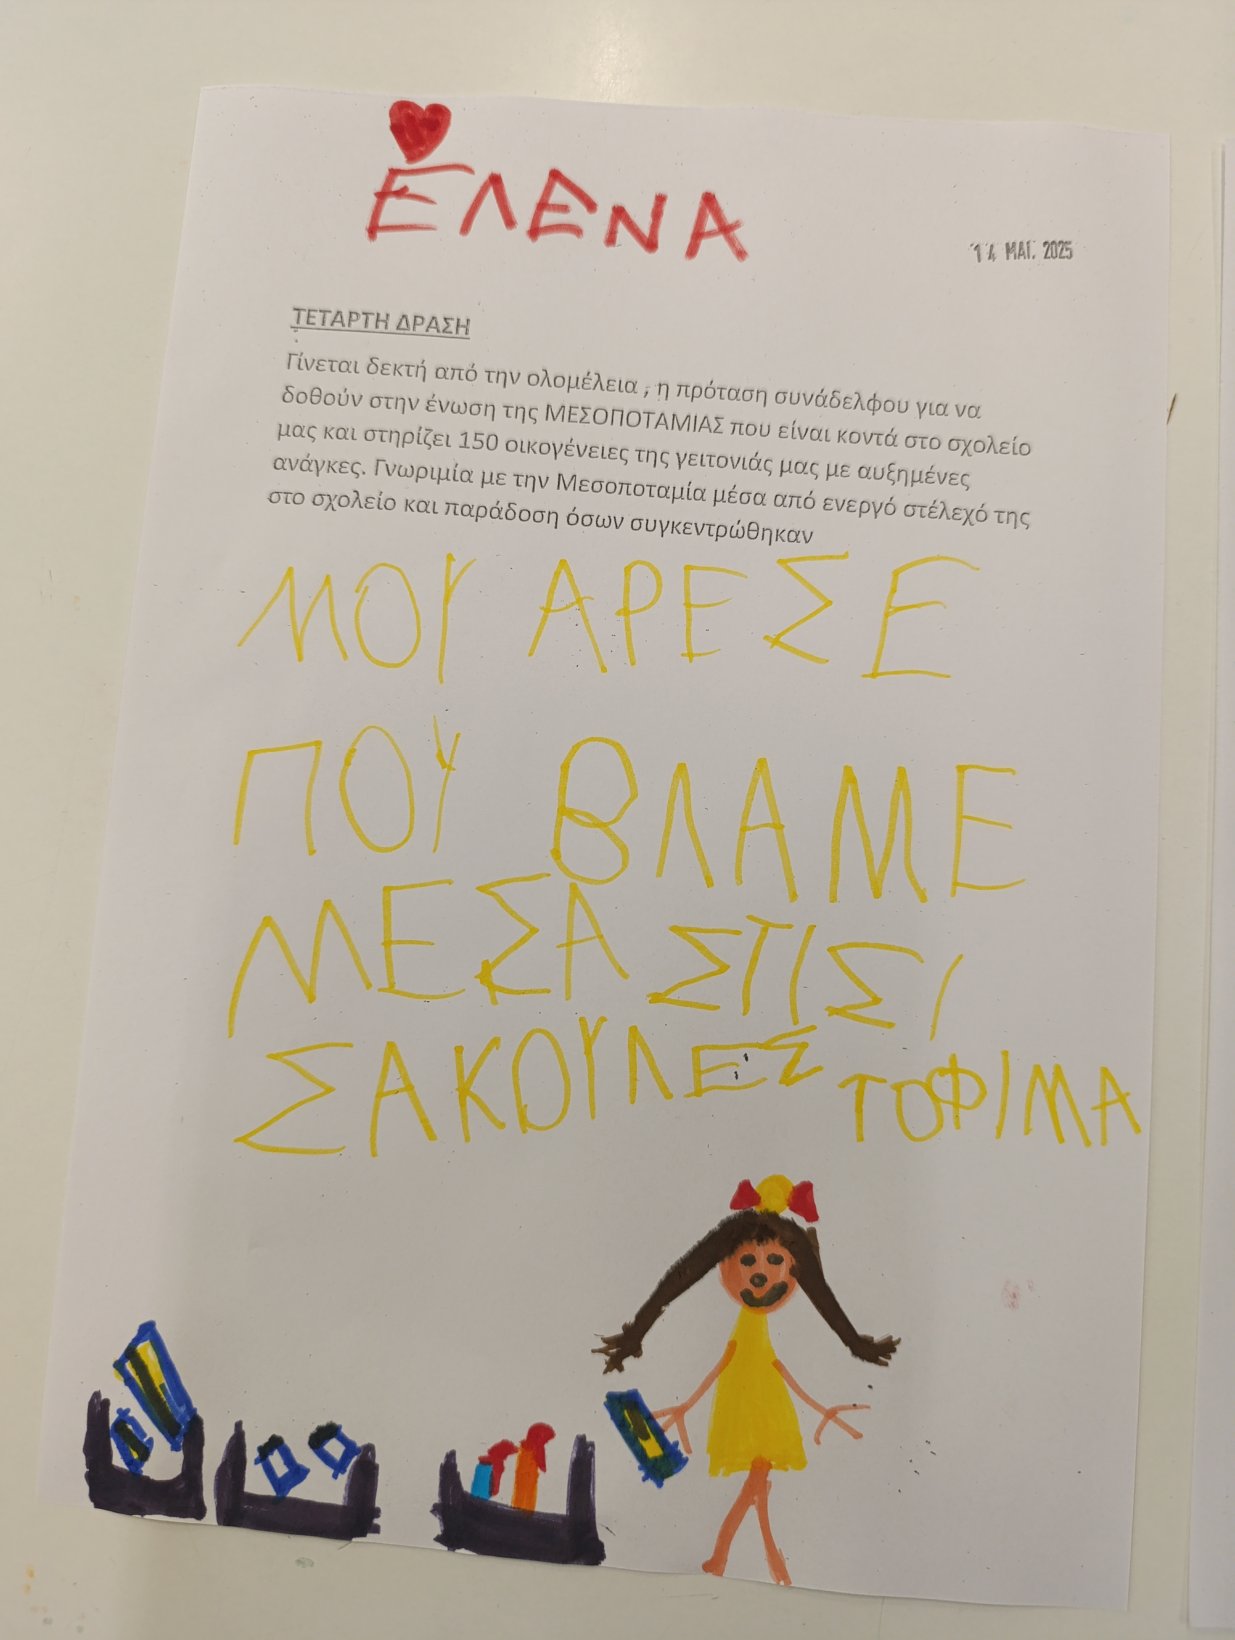 ΕΛΕΝΑ
14 ΜΑΙ. 2025
ΤΕΤΑΡΤΗ ΔΡΑΣΗ
Γίνεται δεκτή από την ολομέλεια , η πρόταση συνάδελφου για να
δοθούν στην ένωση της ΜΕΣΟΠΟΤΑΜΙΑΣ που είναι κοντά στο σχολείο
μας και στηρίζει 150 οικογένειες της γειτονιάς μας με αυξημένες
ανάγκες. Γνωριμία με την Μεσοποταμία μέσα από ενεργό στέλεχό της
στο σχολείο και παράδοση όσων συγκεντρώθηκαν
ΜΟΥ ΑΡΕΣΕ
ΠΟΥ ΒΛΑΜΕ
ΜΕΣΑ ΣΤΙΣΙ
ΣΑΚΟΥΛΕΣ ΤΟΦΙΜΑ